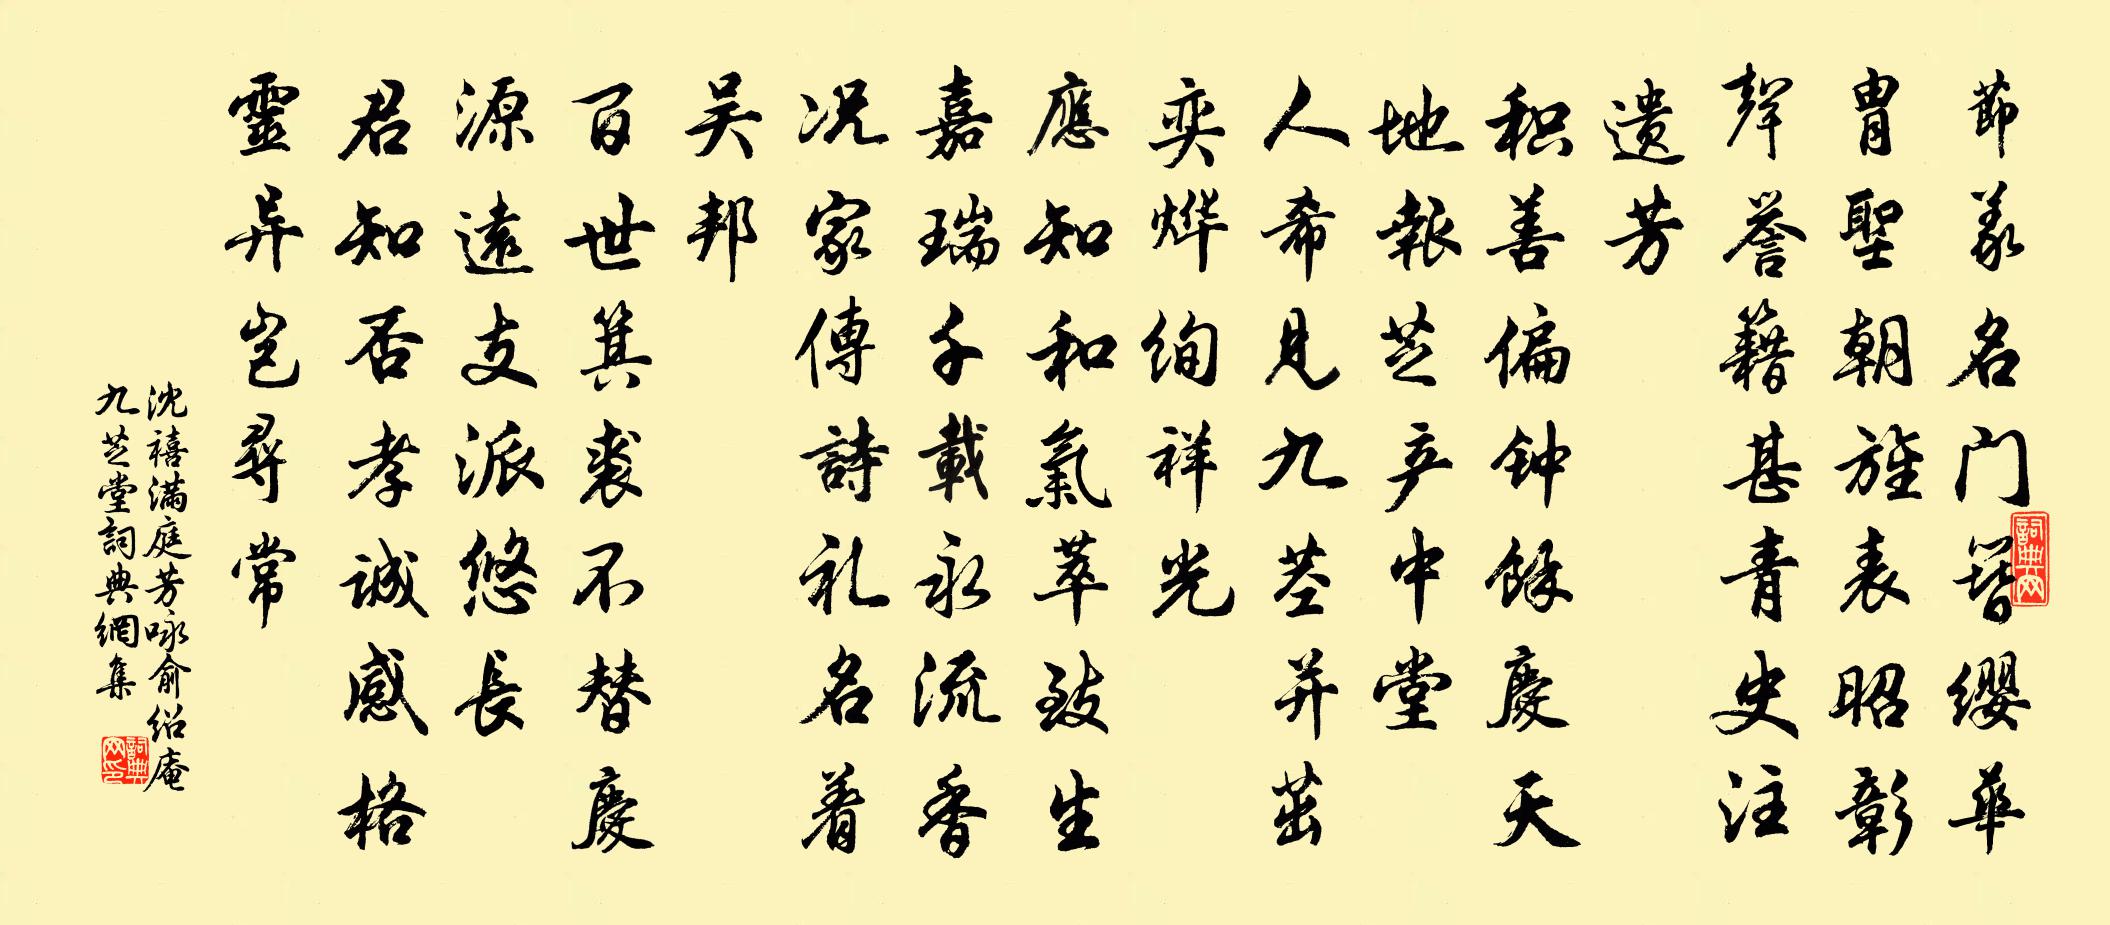 節義名门簪缨華
胄聖朝旌表昭彰
聲誉籍甚青史注
遗芳
积善偏钟餘慶天
地報芝产中堂
人希見九茎并茁
奕烨绚祥光
應知和氣萃致生
嘉瑞千載永流香
况家傳詩礼名着
吴邦
百世箕裘不替慶
源遠支派悠長
君知否孝诚感格
靈异岂尋常
沈禧满庭芳咏俞绍庵
九芝堂詞典網集
詞典网
詞典网印